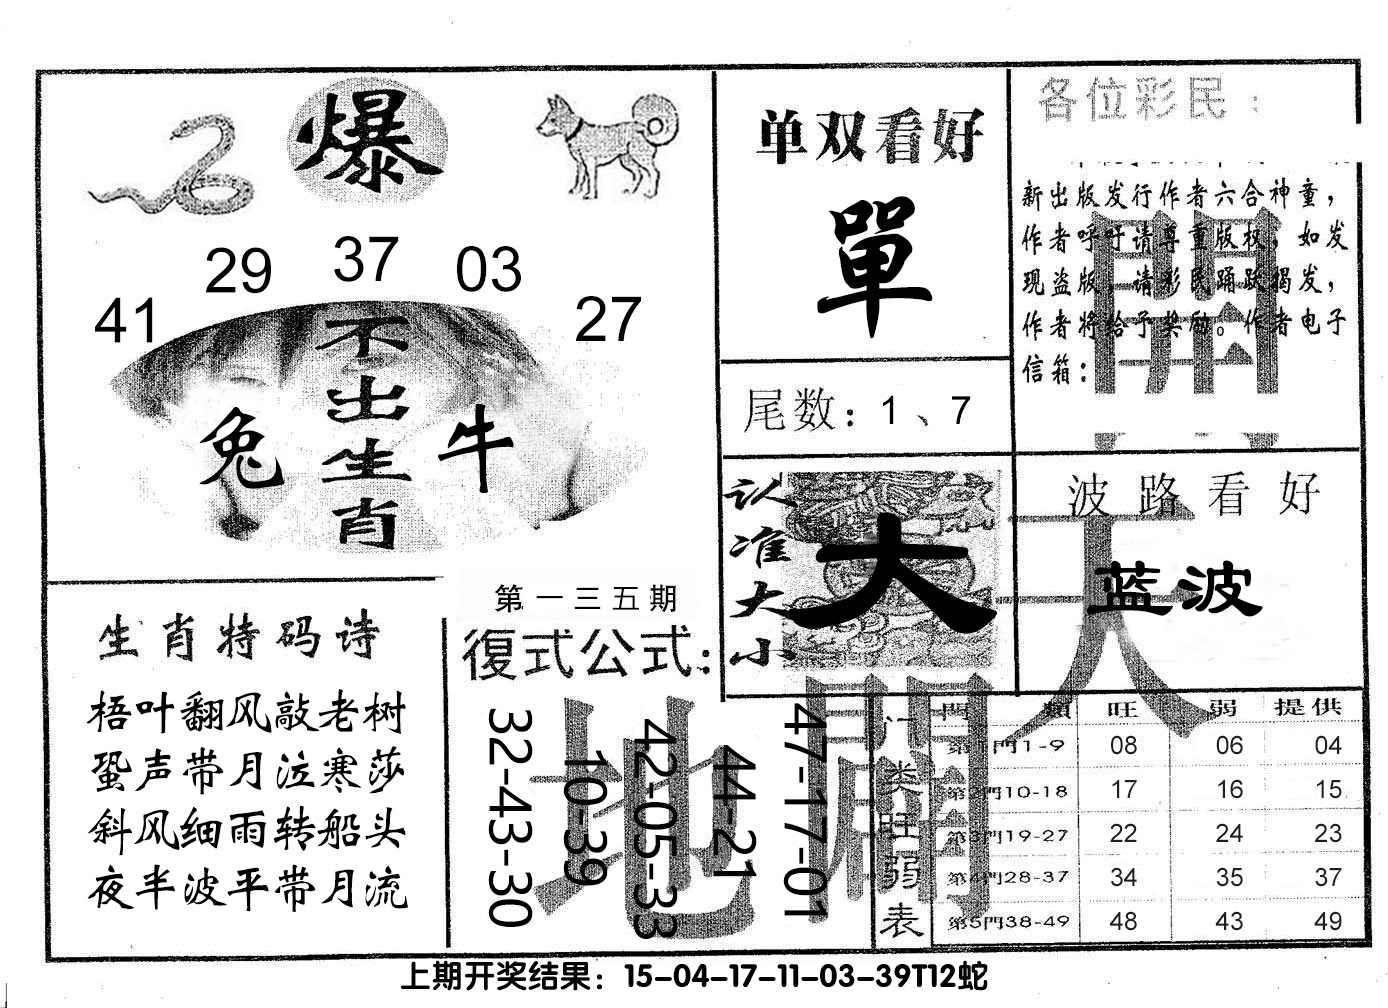 爆
29 37 03
41 27
不出生肖
兔 牛
单双看好
單
尾数：1、7
各位彩民：
新出版发行作者六合神童，
作者呼吁请尊重版权，如发
现盗版，请彩民踊跃揭发，
作者将给予奖励。作者电子
信箱：
认准大小
大
波路看好
蓝波
天
開
地
生肖特码诗
梧叶翻风敲老树
蛩声带月泣寒莎
斜风细雨转船头
夜半波平带月流
第一三五期
復式公式：
32-43-30
10-39
42-05-33
44-21
47-17-01
開
门类旺弱表
門類 旺 弱 提供
第1門1-9 08 06 04
第2門10-18 17 16 15
第3門19-27 22 24 23
第4門28-37 34 35 37
第5門38-49 48 43 49
上期开奖结果：15-04-17-11-03-39T12蛇